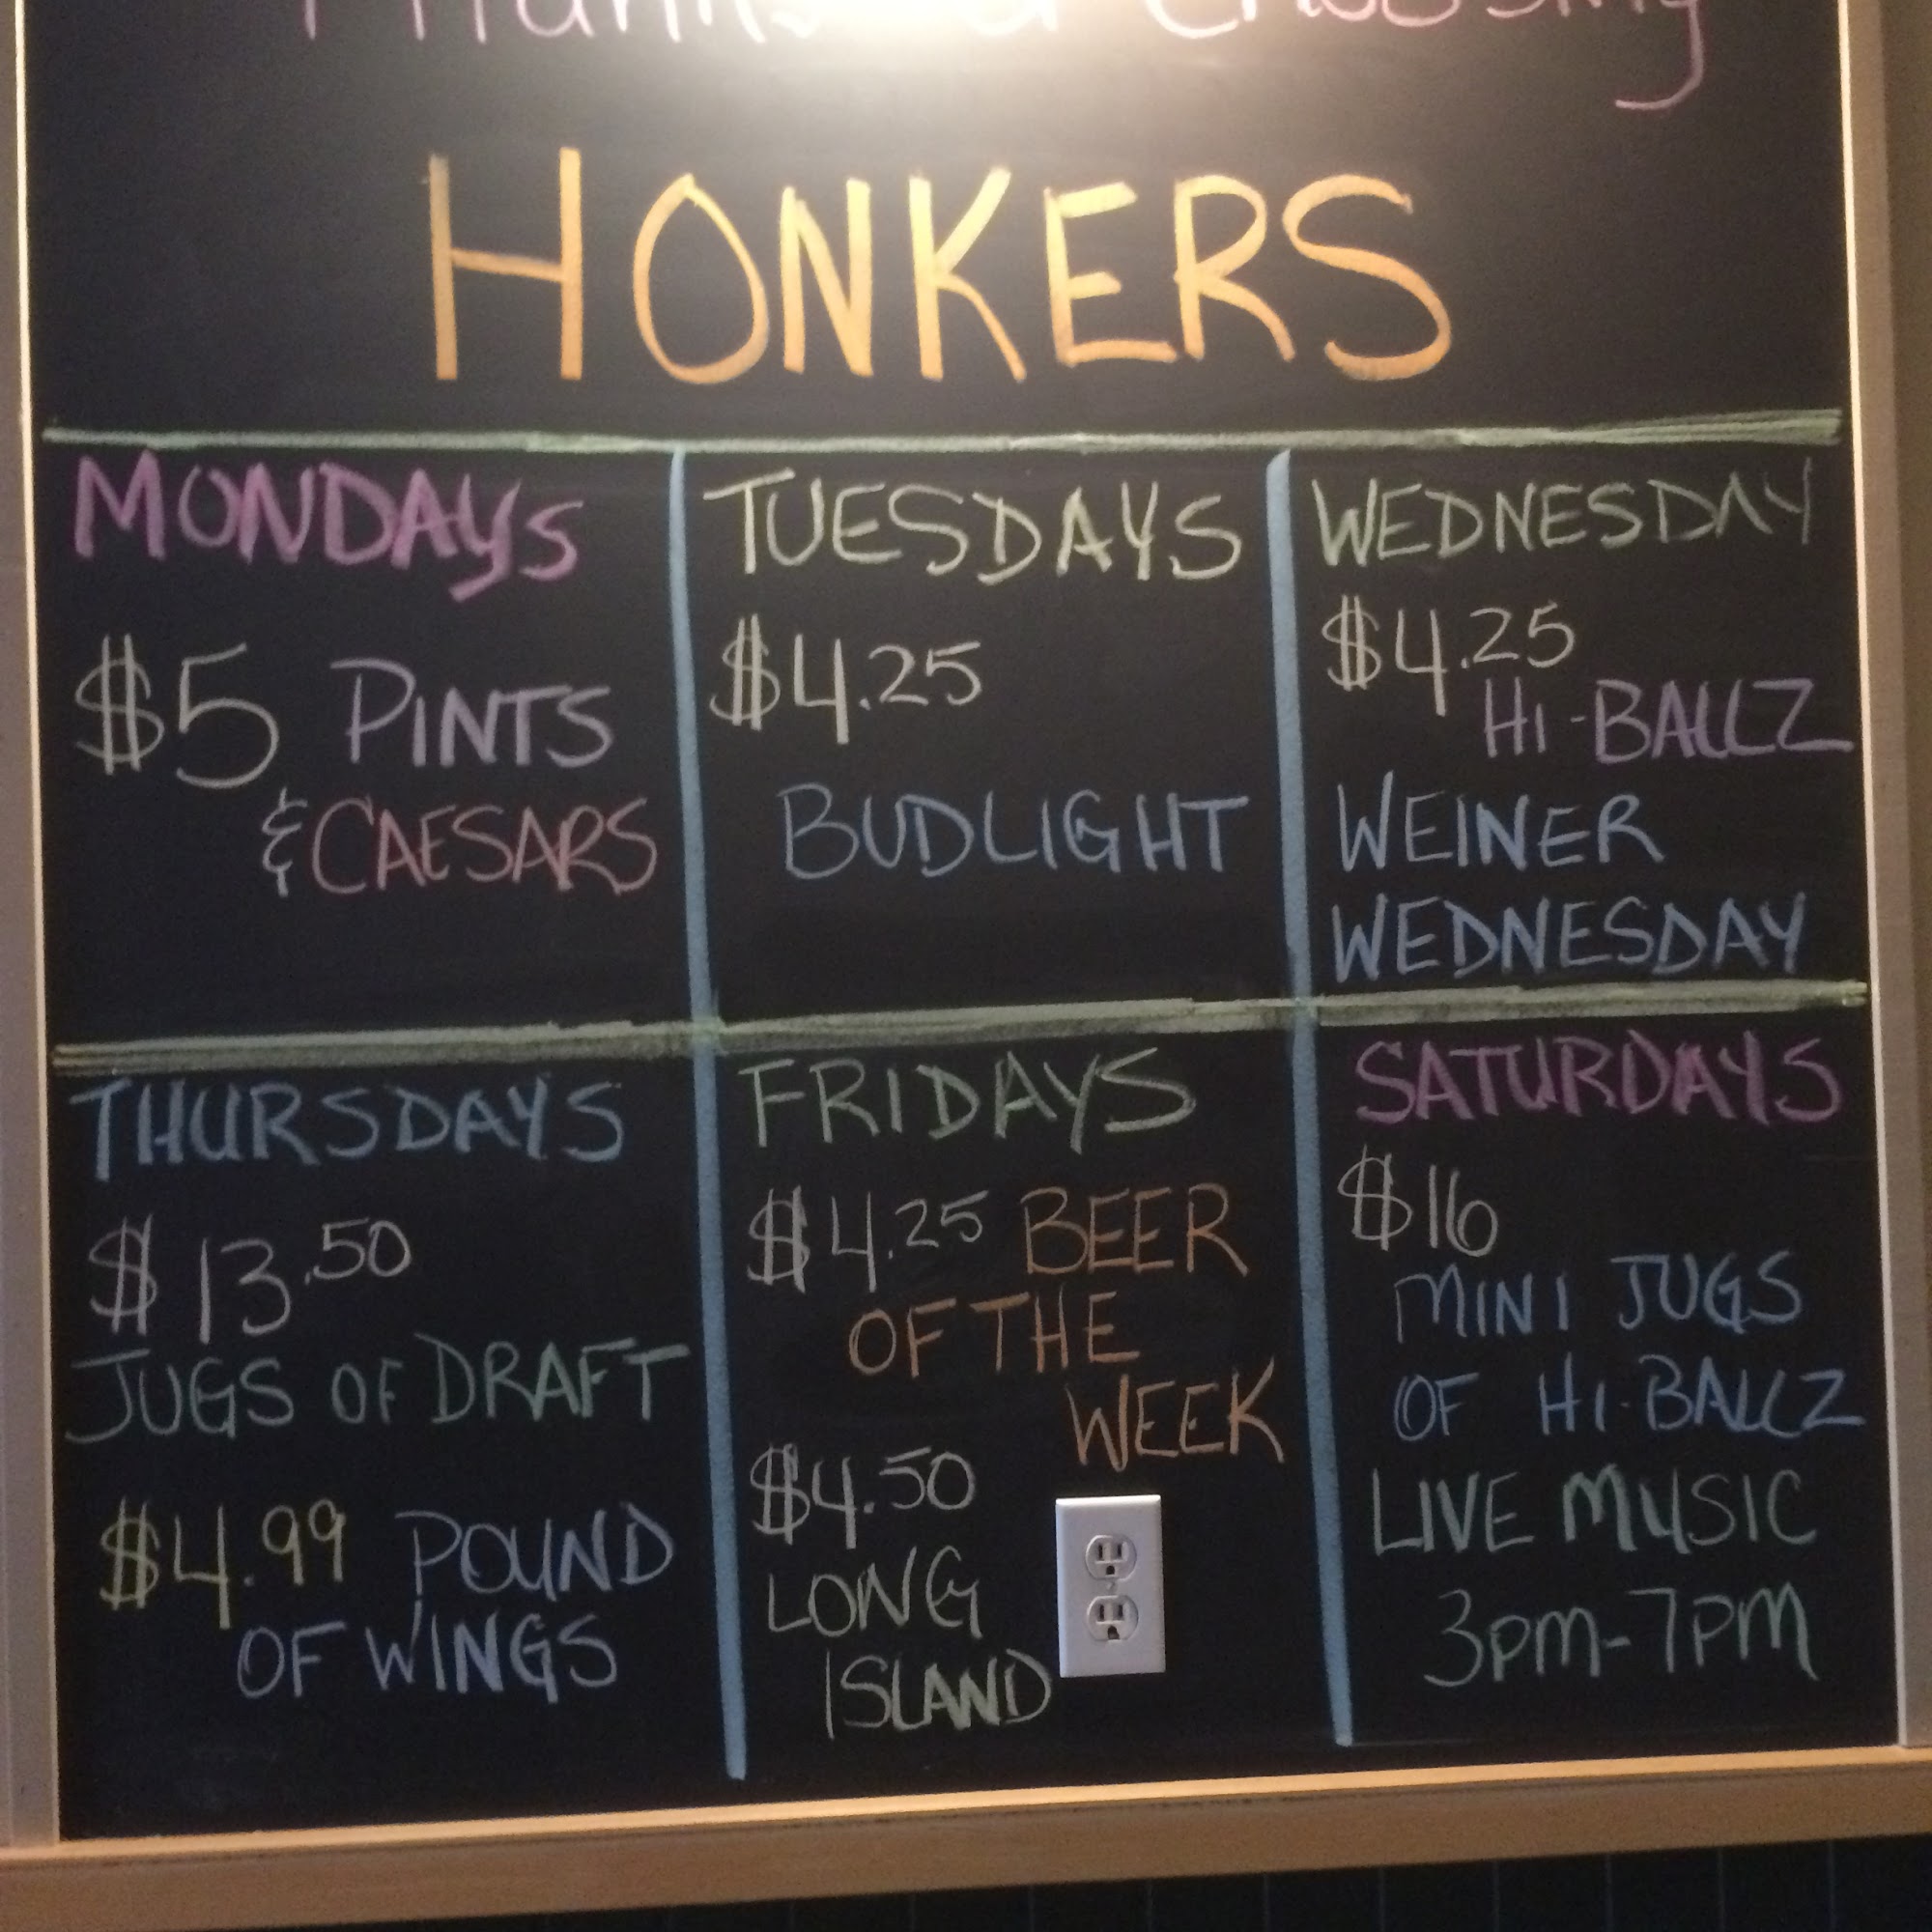 Thanks for Choosing
HONKERS
MONDAYS
$5 PINTS
& CAESARS
TUESDAYS
$4.25
BUDLIGHT
WEDNESDAY
$4.25
HI-BALLZ
WEINER
WEDNESDAY
THURSDAYS
$13.50
JUGS OF DRAFT
$4.99 POUND
OF WINGS
FRIDAYS
$4.25 BEER
OF THE
WEEK
$4.50
LONG
ISLAND
SATURDAYS
$16
MINI JUGS
OF HI-BALLZ
LIVE MUSIC
3PM-7PM